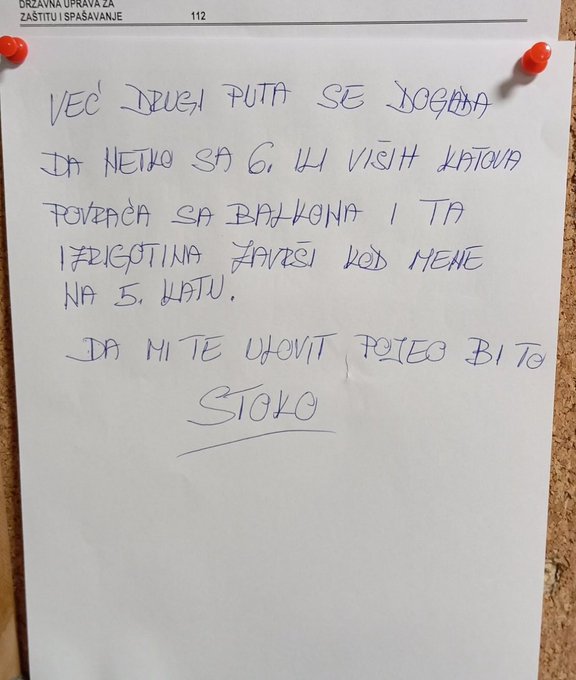 DRŽAVNA UPRAVA ZA
ZAŠTITU I SPAŠAVANJE 112
VEĆ DRUGI PUTA SE DOGAĐA
DA NETKO SA 6. ILI VIŠIH KATOVA
POVRAĆA SA BALKONA I TA
IZRIGOTINA ZAVRŠI KOD MENE
NA 5. KATU.
DA MI TE ULOVIT POJEO BI TO
STOKO